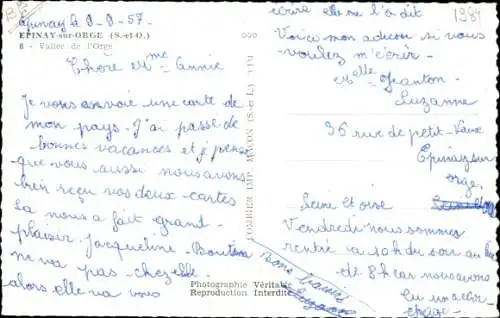 Epinay le 9-9-57.
EPINAY-sur-ORGE (S.-et-O.)
8 - Vallée de l'Orge
Chère Mme Annie
Je vous envoie une carte de
mon pays. J'ai passé de
bonnes vacances et je pense
que vous aussi nous avons
bien reçu vos deux cartes
La nous a fait grand
plaisir. Jacqueline. 
ne va pas chez elle
alors elle va vous
écrire elle me l'a dit
Voici mon adresse si vous
voulez m'écrire.
Melle Jeanton
Suzanne
36 rue de petit-Vaux
Epinay sur
orge.
Seine et oise
Vendredi nous sommes
rentré à 10h du soir au lieu
de 8h car nous avons
eu un accro-
chage.
Bons baisers
Suzanne
COMBIER IMP. MACON (S.-et-L.)
Photographie Véritable
Reproduction Interdite
1984